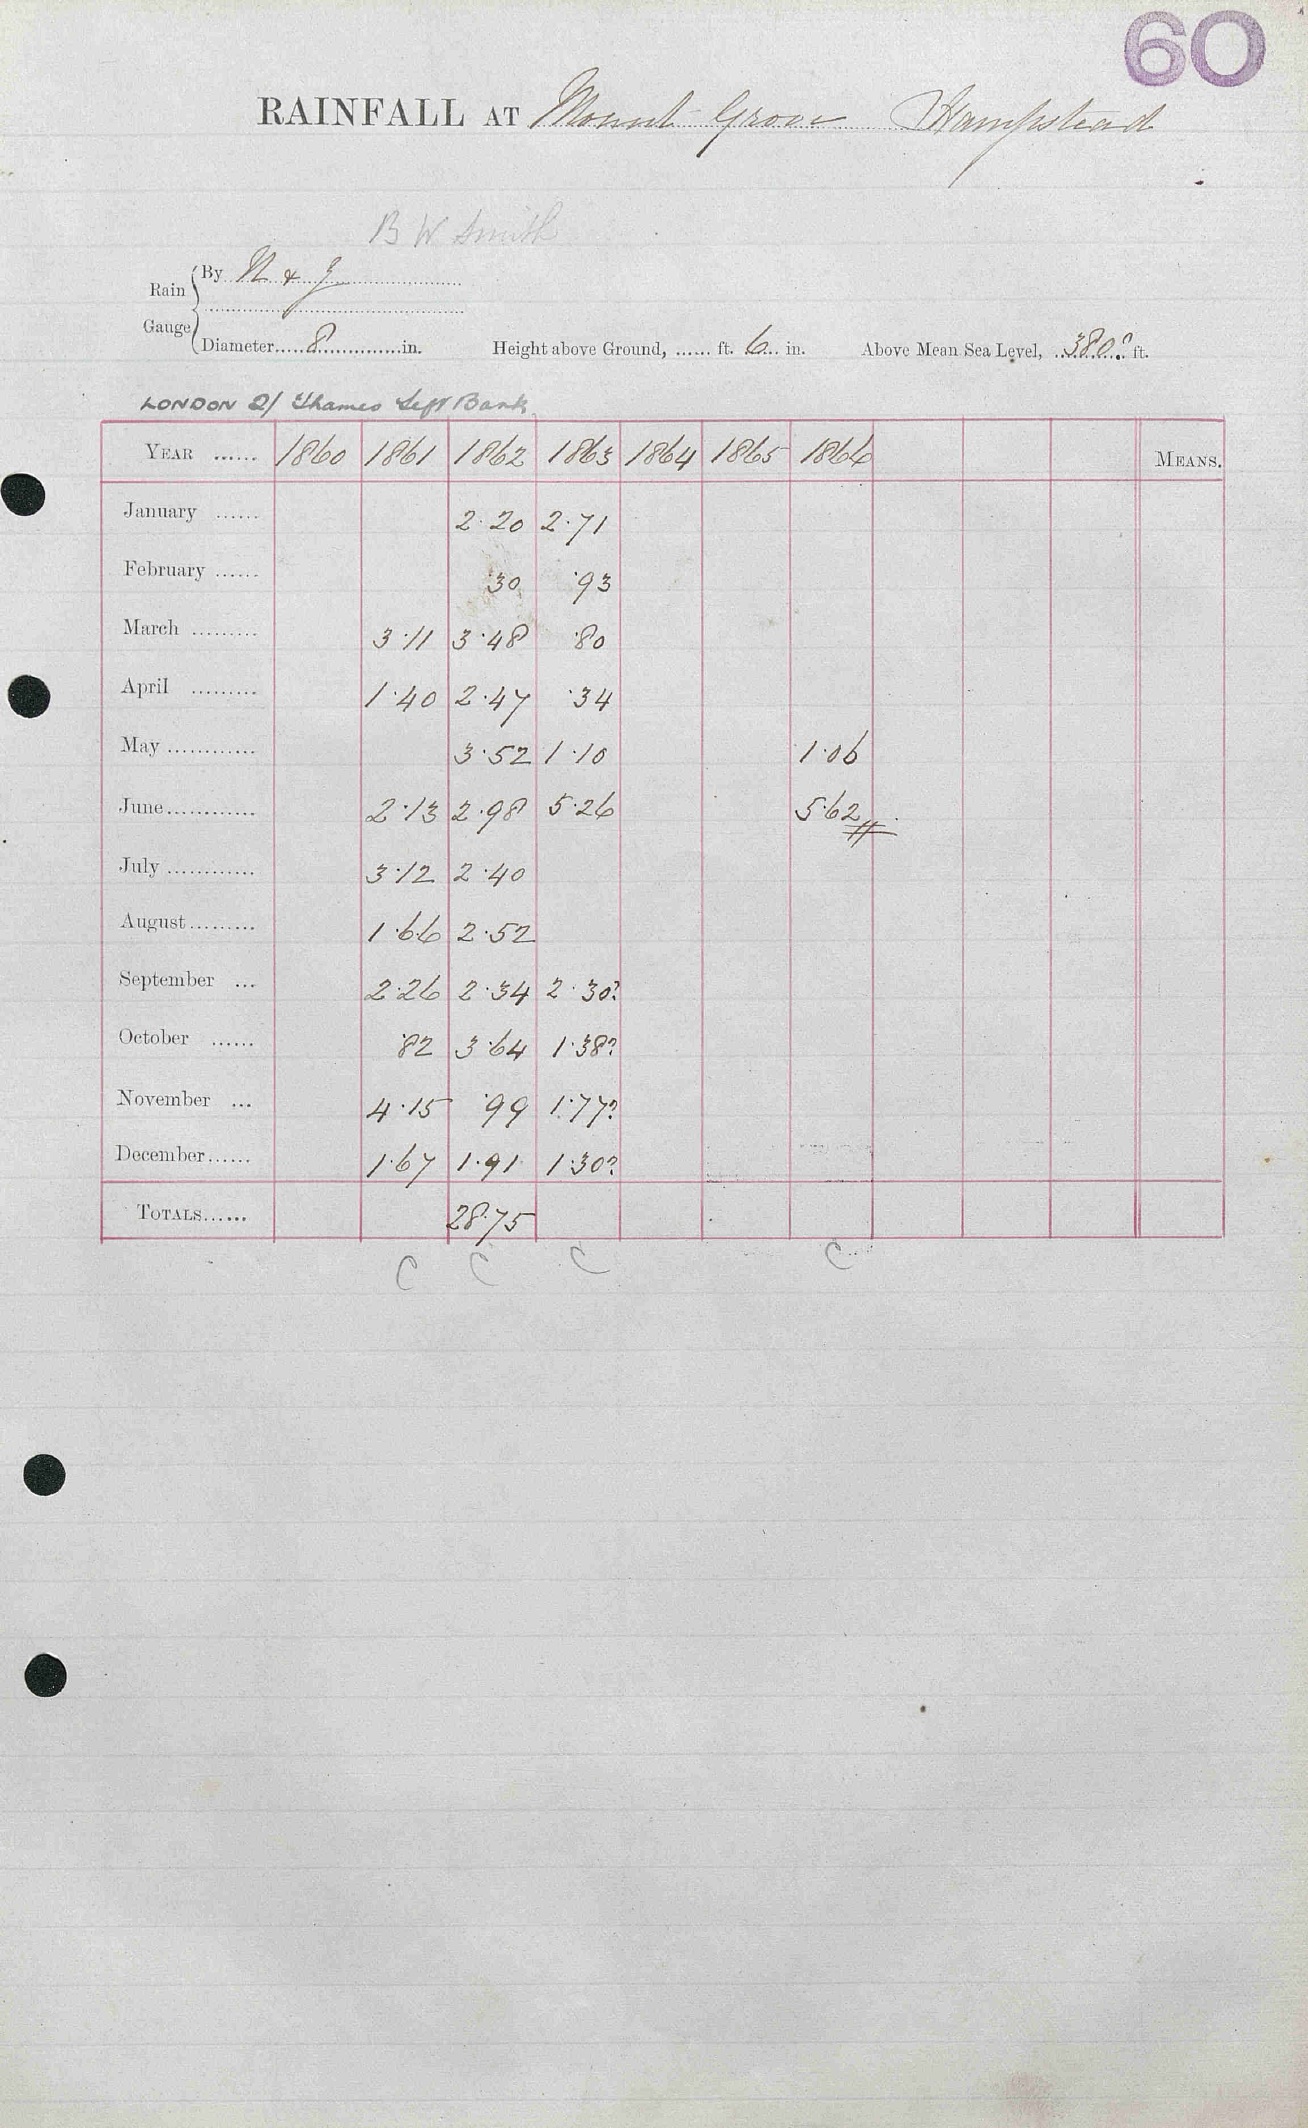 60
RAINFALL AT Mount Grove Hampstead
B W Smith
Rain Gauge
By N & Z
Diameter.....8..............in. Height above Ground, ...... ft. 6... in. Above Mean Sea Level, ..380?.. ft.
LONDON 2/ Thames Left Bank
YEAR ...... 1860 1861 1862 1863 1864 1865 1866 MEANS.
January ...... 2.20 2.71
February ...... .30 .93
March ......... 3.11 3.48 .80
April ......... 1.40 2.47 .34
May ............ 3.52 1.10 1.06
June............ 2.13 2.98 5.26 5.62
July ............ 3.12 2.40
August......... 1.66 2.52
September ... 2.26 2.34 2.30?
October ...... .82 3.64 1.38?
November ... 4.15 .99 1.77?
December...... 1.67 1.91 1.30?
TOTALS...... 28.75
C C C C